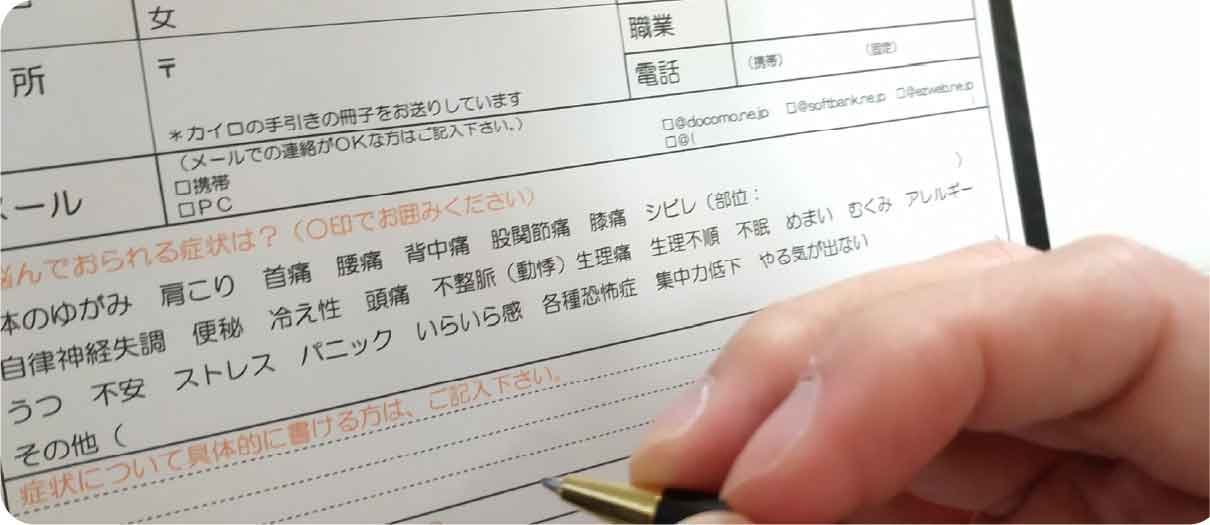 女
職業
所
〒
電話
（携帯）
（固定）
＊カイロの手引きの冊子をお送りしています
メール
（メールでの連絡がOKな方はご記入下さい。）
□携帯
□@docomo.ne.jp □@softbank.ne.jp □@ezweb.ne.jp
□PC
□@( )
悩んでおられる症状は？（〇印でお囲みください）
体のゆがみ 肩こり 首痛 腰痛 背中痛 股関節痛 膝痛 シビレ（部位： ）
自律神経失調 便秘 冷え性 頭痛 不整脈（動悸）生理痛 生理不順 不眠 めまい むくみ アレルギー
うつ 不安 ストレス パニック いらいら感 各種恐怖症 集中力低下 やる気が出ない
その他（ ）
症状について具体的に書ける方は、ご記入下さい。